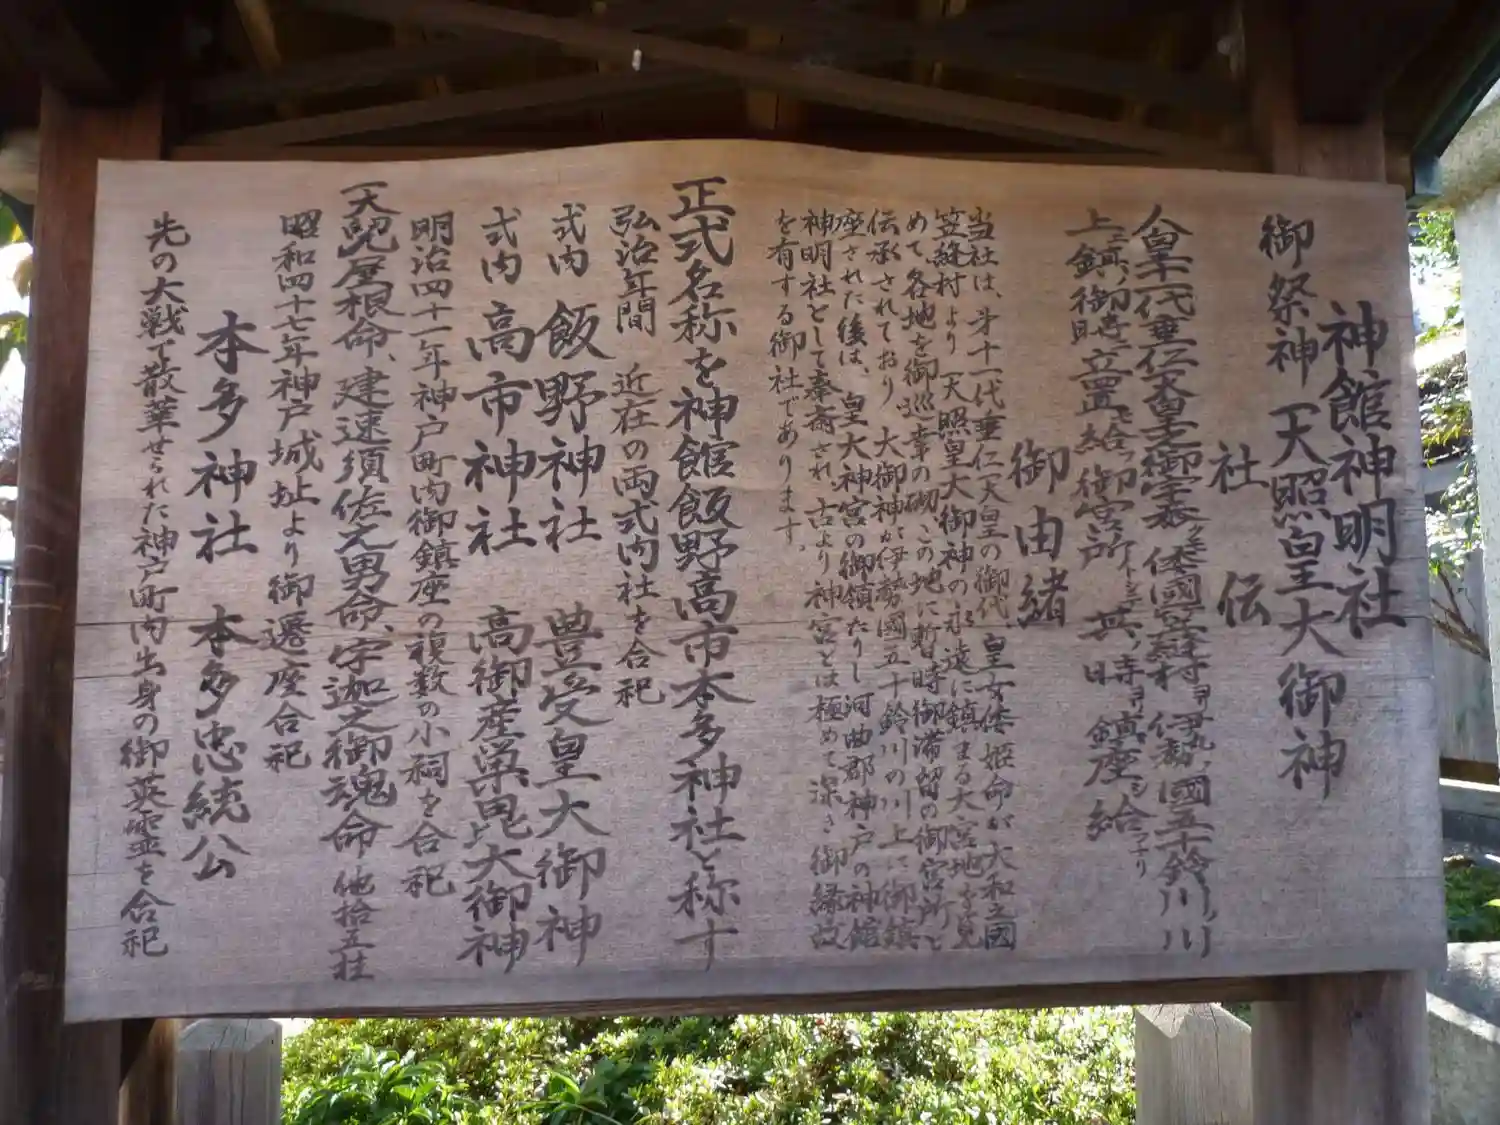 神館神明社
御祭神 天照皇大御神
社伝
人皇十一代垂仁天皇之御宇泰
倭國笠縫村ヨリ伊勢ノ國五十鈴川ノ川
上ニ鎮ノ御時ニ立置セ給フ御宮所
其ノ時ヨリ鎮座シ給フナリ
御由緒
当社は、才十一代垂仁天皇の御代、皇女倭姫命が大和之國
笠縫村より天照皇大御神の永遠に鎮まる大宮地を見
めて、各地を御巡幸の砌、この地に暫時御滞留の御宮所と
伝承されており、大御神が伊勢國五十鈴川の川上に御鎮
座された後は、皇大神宮の御領たりし河曲郡神戸の神館
神明社として奉斎され、古より神宮とは極めて深き御縁故
を有する御社であります。
正式名称を神館飯野高市本多神社と称す
弘治年間 近在の両式内社を合祀
式内 飯野神社 豊受皇大御神
式内 高市神社 高御産巣毘大御神
明治四十一年神戸町内御鎮座の複数の小祠を合祀
天児屋根命、建速須佐之男命、宇迦之御魂命 他拾五柱
昭和四十七年神戸城址より御遷座合祀
本多神社 本多忠統公
先の大戦で散華せられた神戸町内出身の御英霊を合祀